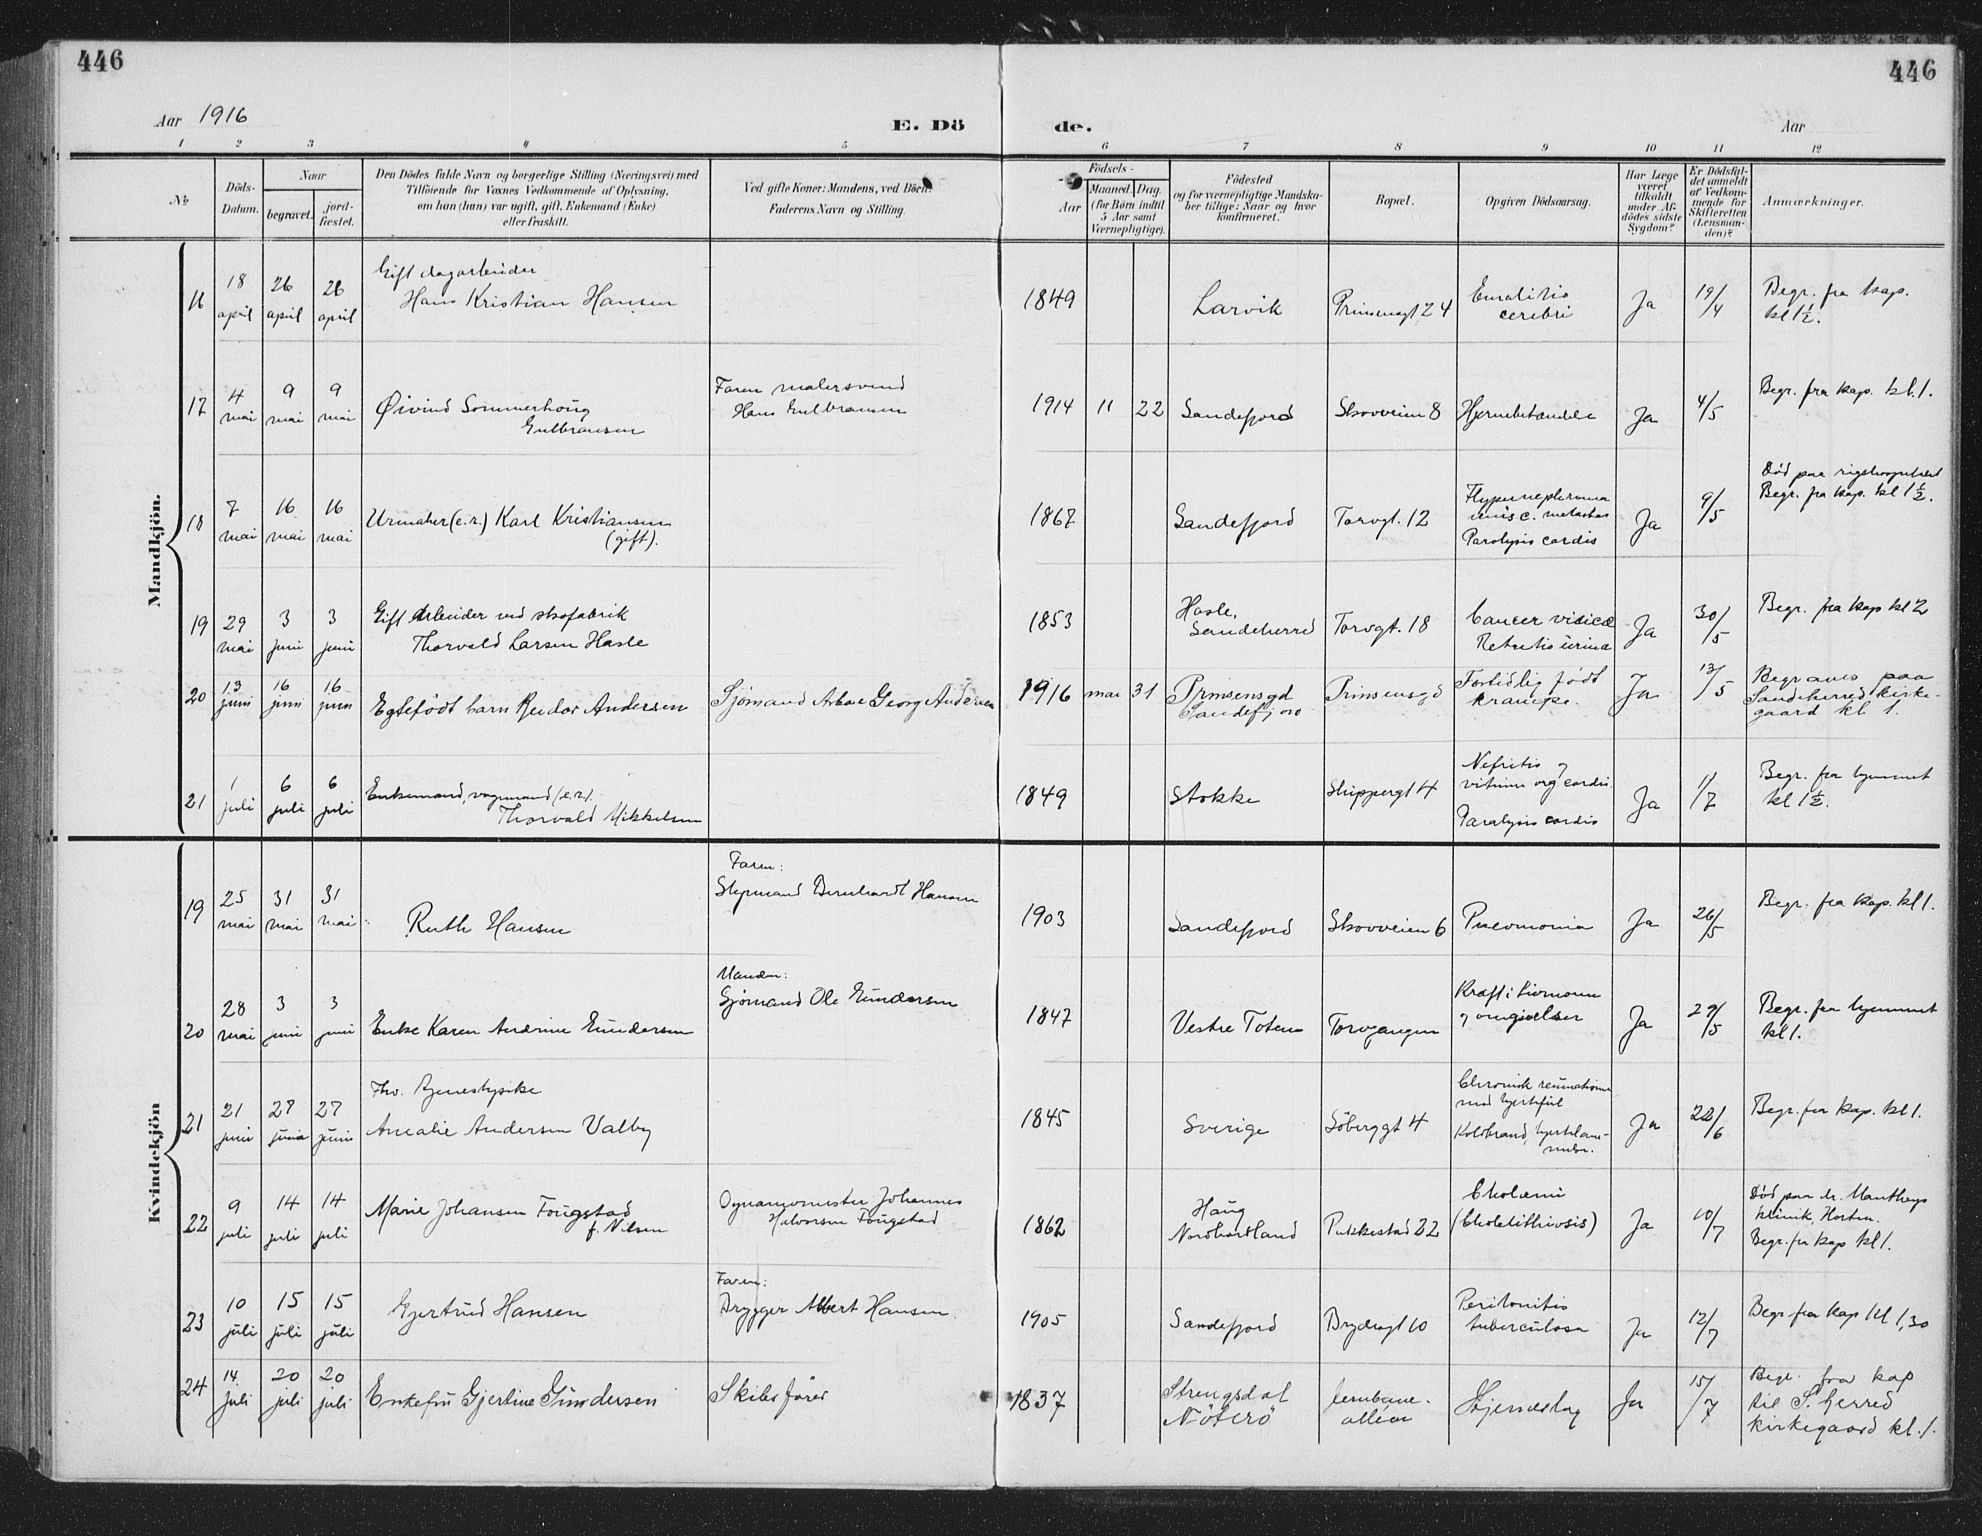 446
446
Aar 1916
E. Dö
de.
Aar
1 2 3 4 5 6 7 8 9 10 11 12
No
Döds-Datum.
Naar
begravet.
jord-fæstet.
Den Dödes fulde Navn og borgerlige Stilling (Næringsvei) med
Tilföiende for Voxnes Vedkommende af Oplysning,
om han (hun) var ugift, gift, Enkemand (Enke)
eller fraskilt.
Ved gifte Koner: Mandens, ved Börn:
Faderens Navn og Stilling.
Födsels-
Aar
Maaned. Dag.
(for Börn indtil
5 Aar samt
Værnepligtige).
Födested
og for værnepligtige Mandska-
ber tillige: Naar og hvor
konfirmeret.
Bopæl.
Opgiven Dödsaarsag.
Har Læge
været
tilkaldt
under Af-
dödes sidste
Sygdom?
Er Dödsfal-
det anmeldt
af Vedkom-
mende for
Skifteretten
(Lensman-
den)?
Anmærkninger.
Mandkjön.
16 18 april 26 april 26 april
Gift dagarbeider
Hans Kristian Hansen
1849 Larvik Prinsensgt 24
cerebri
Ja 19/4
Begr. fra kap.
kl 1½.
17 4 mai 9 mai 9 mai
Øivind Sommerhoug
Gulbransen
Faren malersvend
Hans Gulbransen
1914 11 22 Sandefjord Skovveien 8 Hjernebetændelse Ja 4/5
Begr. fra kap. kl. 1.
18 7 mai 16 mai 16 mai
Urmaker (e.r.) Karl Kristiansen
(gift).
1867 Sandefjord Torvgt. 12
Hypernephroma
renis c. metastas
Paralysis cordis
Ja 9/5
Død paa rigshospitalet
Begr. fra kap. kl 1½.
19 29 mai 3 juni 3 juni
Gift Arbeider ved skofabrik
Thorvald Larsen Hasle
1853
Hasle,
Sandeherred
Torvgt. 18
Cancer vesicæ
Retentio urina
Ja 30/5
Begr. fra kap kl 2
20 13 juni 16 juni 16 juni
Egtefødt barn Reidar Andersen
Sjømand Georg Andersen
1916 mai 31
Prinsensgd
Sandefjord
Prinsensgd
Fortidlig født
krampe.
Ja 13/5
Begraves paa
Sandeherred kirke-
gaard kl 1.
21 1 juli 6 juli 6 juli
Enkemand, vognmand (e.r.).
Thorvald Mikkelsen
1849 Stokke Skippergt 4
Nefritis og
vitium org cordis.
Paralysis cordis
Ja 1/7
Begr. fra hjemmet
kl 1½.
Kvindekjön
19 25 mai 31 mai 31 mai
Ruth Hansen
Faren:
Styrmand Bernhardt Hansen
1903 Sandefjord Skovveien 6 Pneumonia Ja 26/5
Begr. fra kap. kl 1.
20 28 mai 3 juni 3 juni
Enke Karen Andrine Gundersen
Manden:
Sjømand Ole Gundersen
1847 Vestre Toten Torvgangen
Kræft i livmoren
og omgivelser
Ja 29/5
Begr. fra hjemmet
kl 1.
21 21 juni 27 juni 27 juni
Fhv. tjenestepike
Amalie Andersen Valby
1845 Sverige Söberggt 4
Chronisk reumatisme
med hjertefeil
Koldbrand, hjertelam-
melse.
Ja 22/6
Begr. fra kap. kl 1.
22 9 juli 14 juli 14 juli
Marie Johansen Fougstad
f. Nilsen
Dynamomester Johannes
Halvorsen Fougstad
1862
Haug
Nordhordland
Pukkestad 22
Cholæmi
(Cholelithiosis)
Ja 10/7
Død paa dr. Mantheys
klinik, Horten.
Begr. fra kap kl 1.
23 10 juli 15 juli 15 juli
Gjertrud Hansen
Faren:
Brygger Albert Hansen
1905 Sandefjord Brydesgt 10
Peritonitis
tuberculosa
Ja 12/7
Begr. fra kap kl 1,30
24 14 juli 20 juli 20 juli
Enkefru Gjertine Gundersen
Skibsfører
1837
Strengsdal
Nöterö
Jernbane-
alléen
Hjerneslag
Ja 15/7
Begr. fra kap
til S. herred
kirkegaard kl. 1.